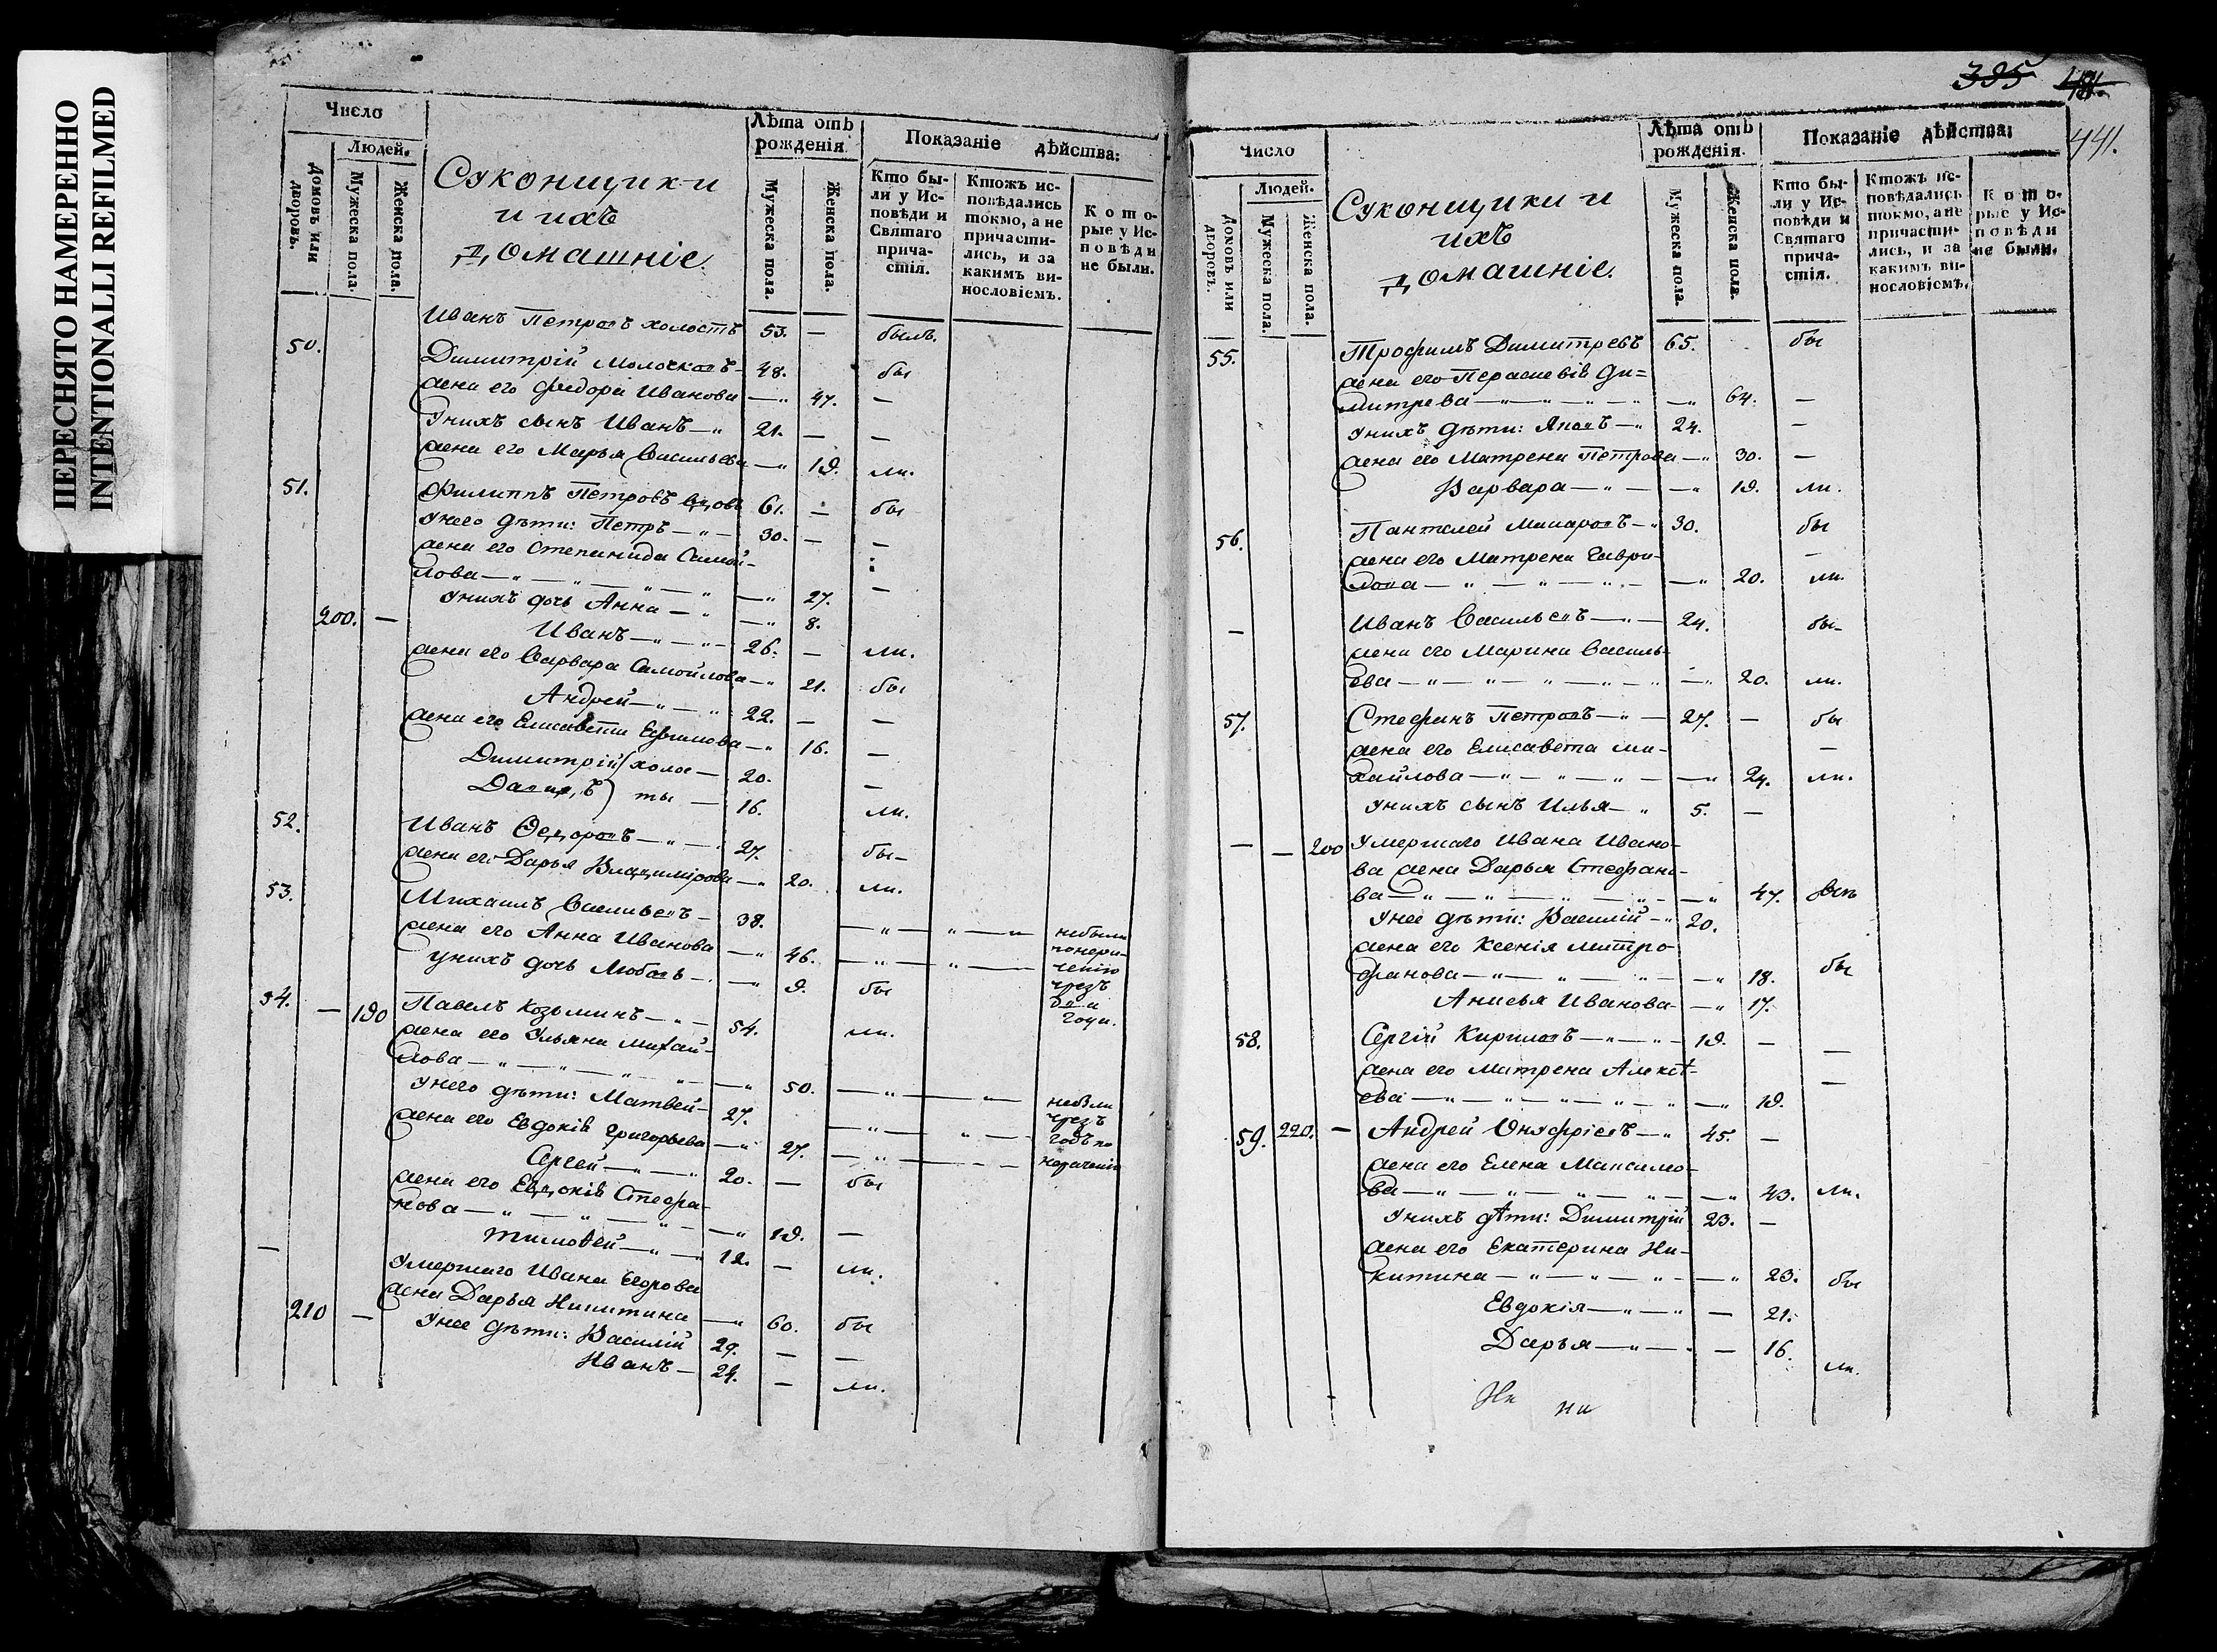 ПЕРЕСНЯТО НАМЕРЕННО
INTENTIONALLI REFILMED
Число
Людей.
Домовъ или дворовъ.
Мужеска пола.
Женска пола.
Суконщики
и ихъ
домашніе.
Лѣта отъ рожденія.
Мужеска пола.
Женска пола.
Показаніе дѣйства:
Кто были у Исповѣди и Святаго причастія.
Ктожъ исповѣдались токмо, а не причастились, и за какимъ винословіемъ.
Которые у Исповѣди не были.
Иванъ Петровъ холостъ 53. — былъ.
50. Димитрій Молочковъ 48. бы
жена его Федора Иванова —„ 47. —
У нихъ сынъ Иванъ —„ 21. — —
жена его Марья Васильева —„ 19. ли.
51. Филиппъ Петровъ вдовъ 61. — бы
У него дѣти: Петръ —„— 30. — —
жена его Степанида Самой-
лова —„—„—„—„ —„ 27. —
У нихъ дочь Анна —„ —„ 8.
200. — Иванъ —„—„— 26. — ли.
жена его Варвара Самойлова —„ 21. бы
Андрей —„—„ 22. — —
жена его Елисавета Ефимова —„ 16. —
Димитрій) холос — 20. —
Давидъ) ты — 16. ли.
52. Иванъ Ѳедоровъ —„— 27. бы
жена его Дарья Владимірова —„ 20. ли.
53. Михаилъ Васильевъ — 38. —„—„—„ небыли
жена его Анна Иванова —„ 46. —„—„— понера-
ченію
у нихъ дочь Любовь — —„ 9. бы чрезъ
два
года.
54. — 190 Павелъ Козьминъ —„— 54. ли.
жена его Ульяна Михай-
лова —„—„—„—„ —„ 50. —„—„— небыли
У него дѣти: Матвей 27. —„—„— чрезъ
жена его Евдокія Григорьева —„ 27. —„— годъ по
нераченію
Сергей —„—„ 20. — бы
жена его Евдокія Стефа-
нова —„—„—„— —„ 19. —
Тимоѳей —„—„ 12. — ли.
— Умершаго Ивана Егорова
жена Дарья Никитина —„ 60. бы
210 — У нее дѣти: Василій 29. — —
Иванъ — 24. — ли.
395
441.
Число
Людей.
Домовъ или дворовъ.
Мужеска пола.
Женска пола.
Суконщики и
ихъ
домашніе.
Лѣта отъ рожденія.
Мужеска пола.
Женска пола.
Показаніе дѣйства:
Кто были у Исповѣди и Святаго причастія.
Ктожъ исповѣдались токмо, а не причастились, и за какимъ винословіемъ.
Которые у Исповѣди не были.
55. Трофимъ Димитревъ 65. бы
жена его Параскевія Ди=
митрева —„—„—„— —„ 64. —
У нихъ дѣти: Яковъ —„ 24. —
жена его Матрена Петрова —„ 30. —
Варвара —„— —„ 19. ли.
56. Пантелей Макаровъ —„ 30. бы
жена его Матрена Гаври- —
лова —„—„—„— —„ 20. ли.
— Иванъ Васильевъ —„— 24. бы
жена его Марина Василь-
ева —„—„—„—„—„ —„ 20. ли.
57. Стефанъ Петровъ —„— 27. — бы
жена его Елисавета Ми- —
хайлова —„—„—„— —„ 24. ли.
У нихъ сынъ Илья —„ 5. —
— — 200 Умершаго Ивана Ивано-
ва жена Дарья Стефано-
ва —„—„—„—„— —„ 47. былъ
У нее дѣти: Василій —„ 20.
жена его Ксенія Митро-
фанова —„—„—„— —„ 18. бы
Анисья Иванова —„ 17.
58. Сергій Кириловъ —„—„— 19. — —
жена его Матрена Алексѣ- —
ева —„—„—„—„—„ —„ 19.
59. 220. — Андрей Онуфріевъ —„ 45. —
жена его Елена Максимо-
ва —„—„—„—„— —„ 43. ли.
У нихъ дѣти: Димитрій 23. —
жена его Екатерина Ни-
китина —„—„—„— —„ 23. бы
Евдокія —„—„ — 21.
Дарья —„— — 16. ли.
Ни ни